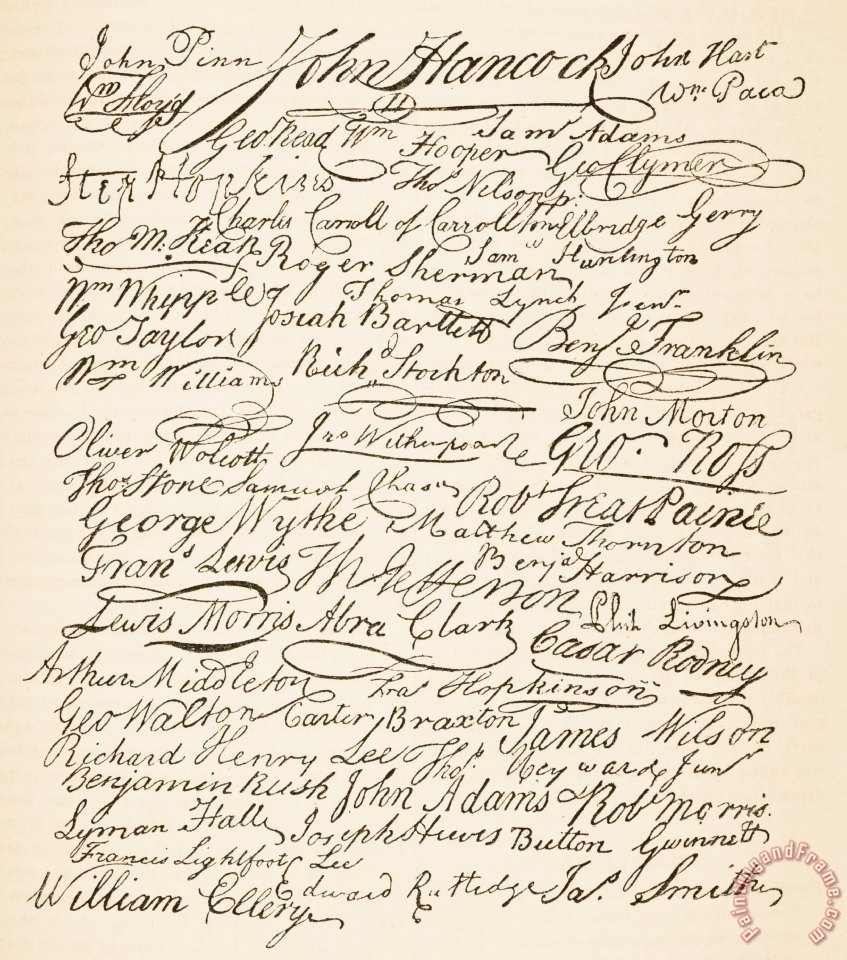 John Pinn John Hancock John Hart
Wm Floyd Wm Paca
Geo Read Wm Hooper Saml Adams
Step Hopkins Thos Nelson jr. Geo Clymer
Charles Carroll of Carrollton Elbridge Gerry
Tho M. Kean Roger Sherman Saml Huntington
Wm Whipple Thomas Lynch Junr
Geo Taylor Josiah Bartlett Benj Franklin
Wm Williams Richd Stockton
John Morton
Oliver Wolcott Jno Witherspoon Geo. Ross
Thos Stone Samuel Chase Robt Treat Paine
George Wythe Matthew Thornton
Frans Lewis Th Jefferson Benja Harrison
Lewis Morris Abra Clark Phil Livingston
Casar Rodney
Arthur Middleton Fras Hopkinson
Geo Walton Carter Braxton James Wilson
Richard Henry Lee Thos Heyward Junr
Benjamin Rush John Adams Robt Morris.
Lyman Hall Joseph Hewes Button Gwinnett
Francis Lightfoot Lee
William Ellery Edward Rutledge Jas Smith
paintingandframe.com